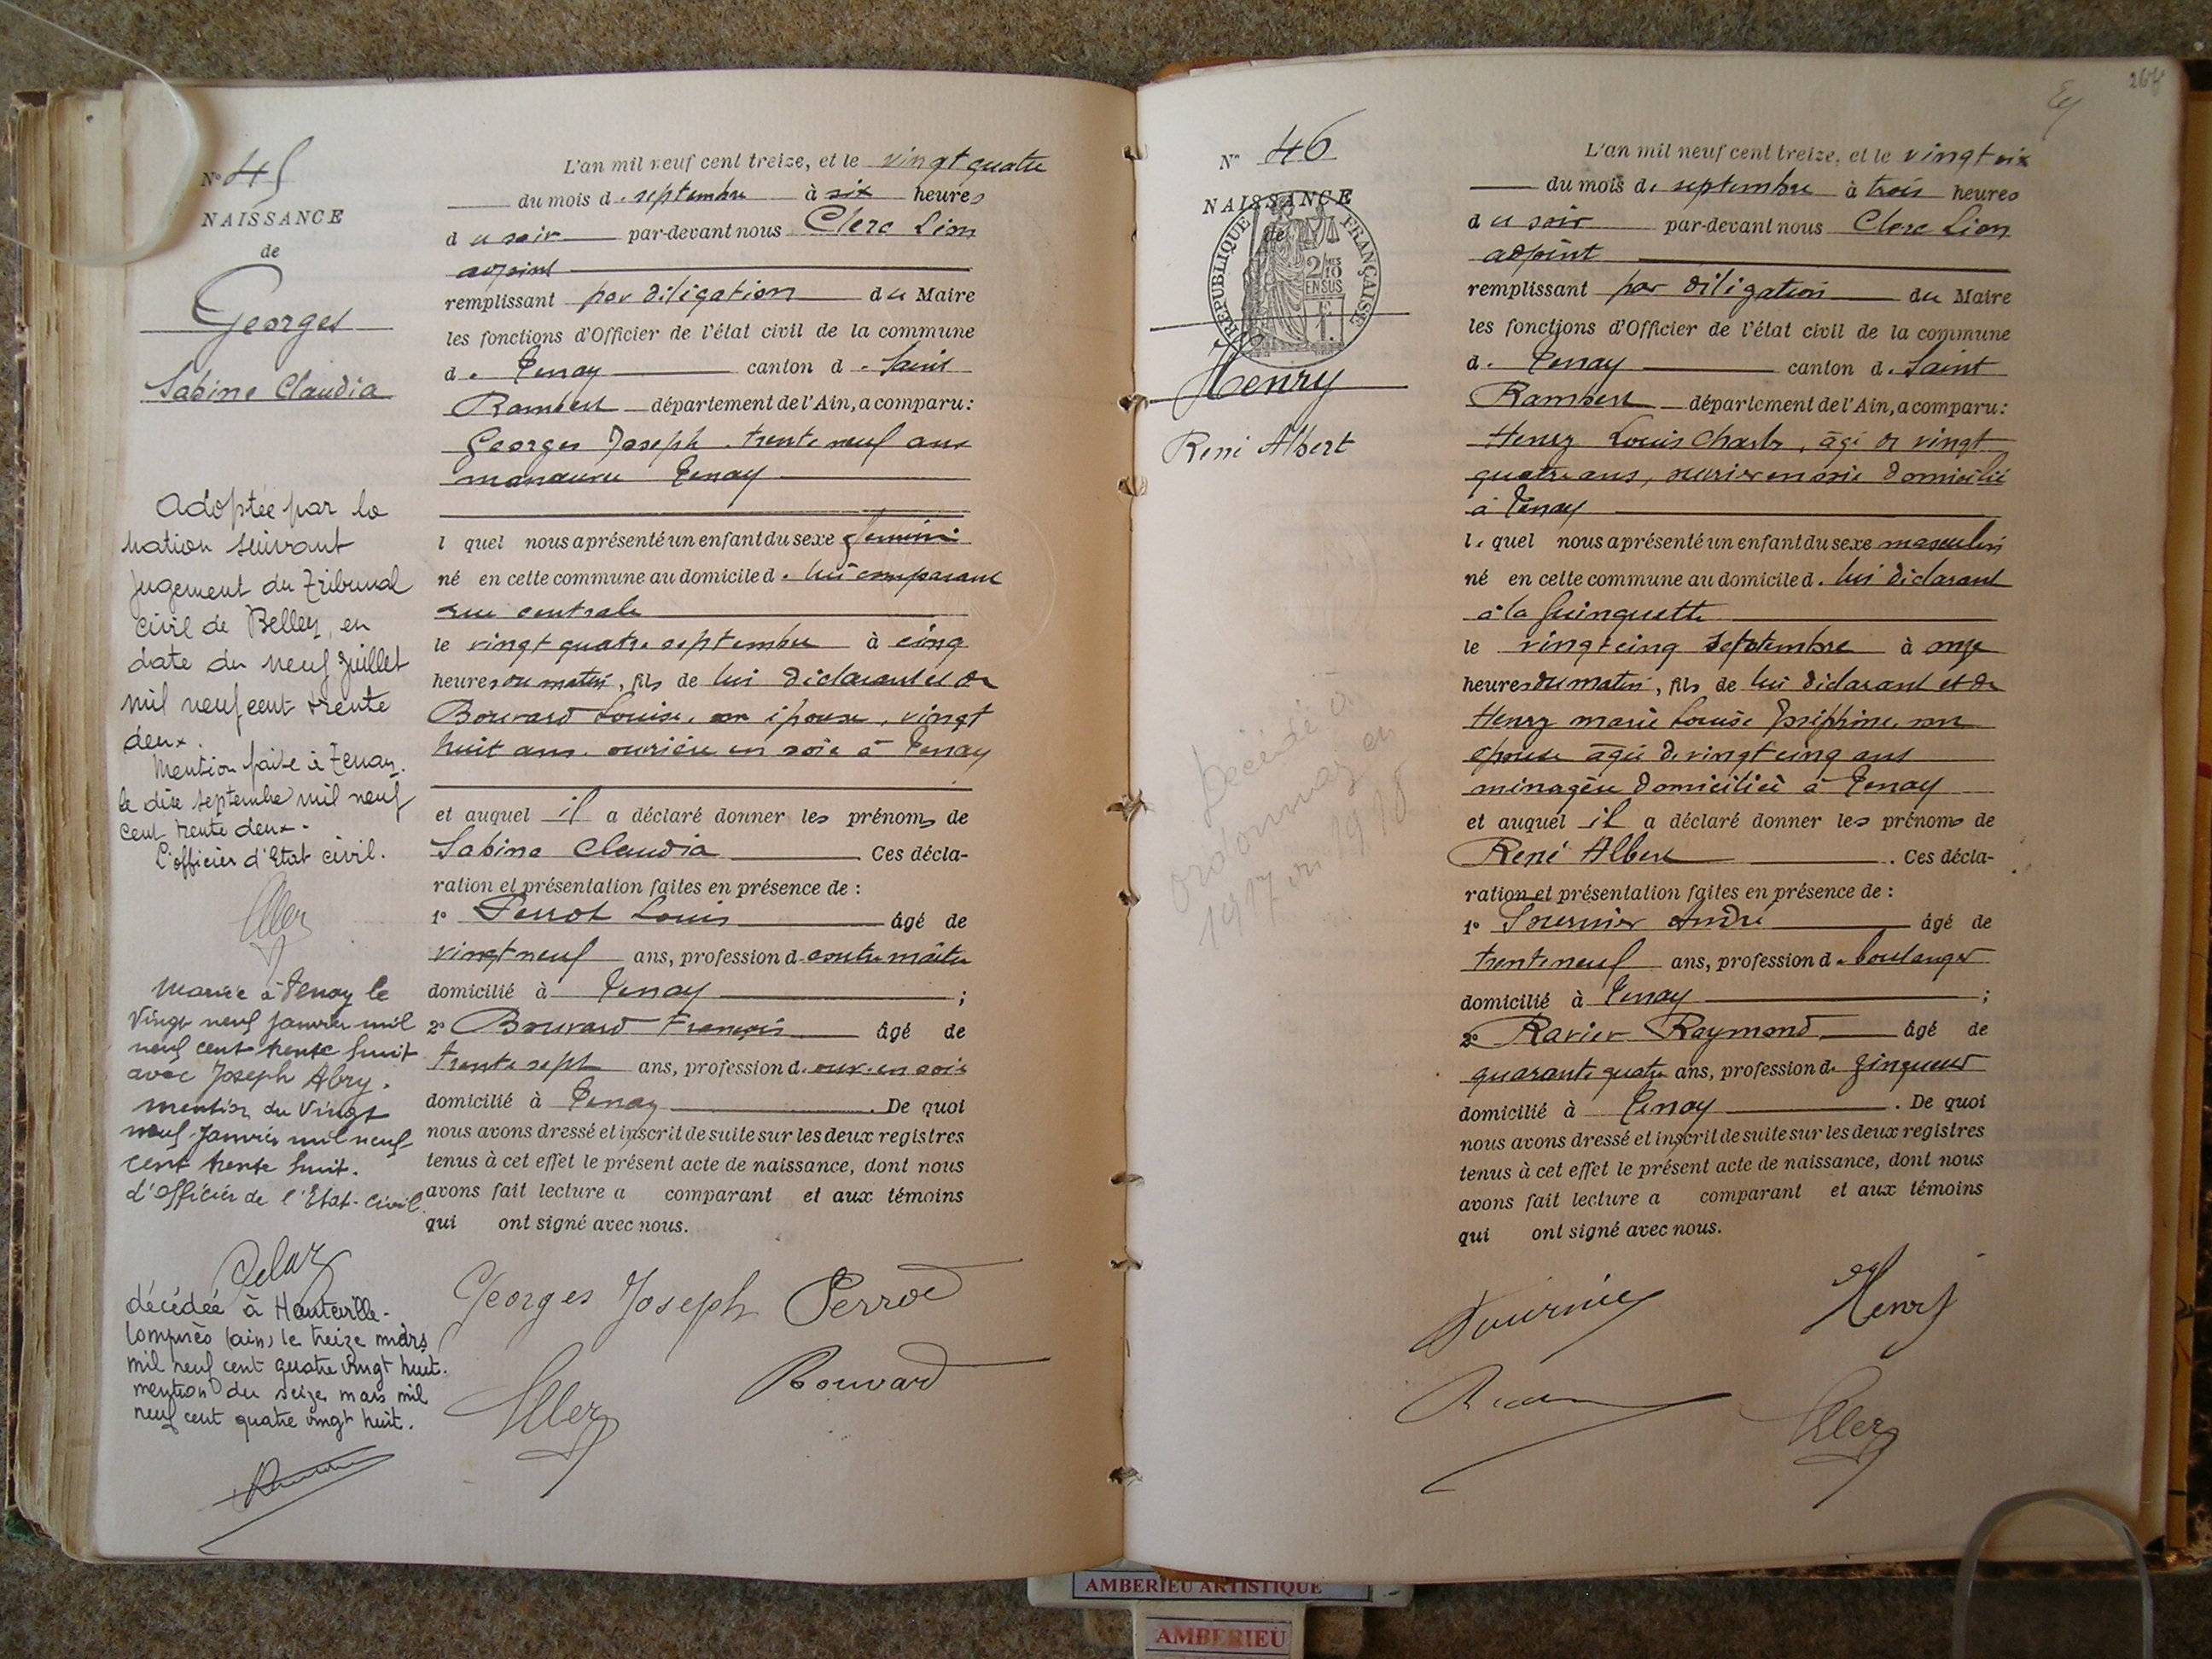 N° 45
NAISSANCE
de
Georges
Sabine Claudia
Adoptée par la
nation suivant
jugement du Tribunal
civil de Belley, en
date du neuf juillet
mil neuf cent trente
deux.
Mention faite à Tenay.
le dix septembre mil neuf
cent trente deux.
L'officier d'Etat civil.
Clerc
Mariée à Tenay le
vingt neuf janvier mil
neuf cent trente huit
avec Joseph Abry.
mention du vingt
neuf janvier mil neuf
cent trente huit.
L'officier de l'Etat-civil.
décédée à Hauteville-
Lompnès (ain) le treize mars
mil neuf cent quatre vingt huit.
mention du seize mars mil
neuf cent quatre vingt huit.
L'an mil neuf cent treize, et le vingt quatre
du mois de septembre à six heures
du soir par-devant nous Clerc Léon
adjoint
remplissant par délégation du Maire
les fonctions d'Officier de l'état civil de la commune
de Tenay canton de Saint
Rambert département de l'Ain, a comparu:
Georges Joseph. trente neuf ans
manœuvre Tenay
l quel nous a présenté un enfant du sexe féminin
né en cette commune au domicile de lui comparant
rue centrale
le vingt quatre septembre à cinq
heures du matin, fils de lui déclarant et de
Bouvard Louise, son épouse, vingt
huit ans. ouvrière en soie à Tenay
et auquel il a déclaré donner les prénoms de
Sabine Claudia Ces décla-
ration et présentation faites en présence de :
1° Perrot Louis âgé de
vingt neuf ans, profession de contre maître
domicilié à Tenay ;
2° Bouvard François âgé de
trente sept ans, profession d. ouv. en soie
domicilié à Tenay . De quoi
nous avons dressé et inscrit de suite sur les deux registres
tenus à cet effet le présent acte de naissance, dont nous
avons fait lecture a comparant et aux témoins
qui ont signé avec nous.
Georges Joseph Perrot
Clerc Bouvard
267
N° 46
NAISSANCE
de
RÉPUBLIQUE FRANÇAISE
2/10 EN SUS
Henry
René Albert
Décédé à
ordonnaz en
1917 ou 1918
L'an mil neuf cent treize, et le vingt six
du mois de septembre à trois heures
du soir par-devant nous Clerc Léon
adjoint
remplissant par délégation du Maire
les fonctions d'Officier de l'état civil de la commune
de Tenay canton de Saint
Rambert département de l'Ain, a comparu:
Henry Louis Charles, âgé de vingt
quatre ans, ouvrier en soie domicilié
à Tenay
le quel nous a présenté un enfant du sexe masculin
né en cette commune au domicile de lui déclarant
à la Guinguette
le vingt cinq septembre à onze
heures du matin, fils de lui déclarant et de
Henry marie Louise Joséphine, son
épouse âgée de vingt cinq ans
ménagère domiciliée à Tenay
et auquel il a déclaré donner les prénoms de
René Albert . Ces décla-
ration et présentation faites en présence de :
1° Fournier André âgé de
trente neuf ans, profession de boulanger
domicilié à Tenay ;
2° Ravier Raymond âgé de
quarante quatre ans, profession de zingueur
domicilié à Tenay . De quoi
nous avons dressé et inscrit de suite sur les deux registres
tenus à cet effet le présent acte de naissance, dont nous
avons fait lecture a comparant et aux témoins
qui ont signé avec nous.
Fournier Henry
Clerc
AMBERIEU ARTISTIQUE
AMBERIEU